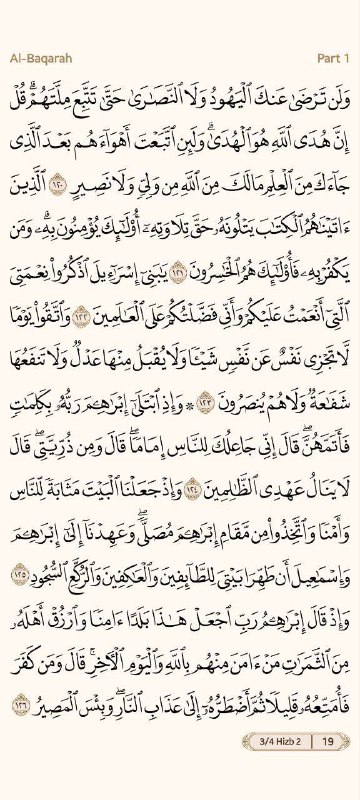 Al-Baqarah Part 1
وَلَن تَرْضَىٰ عَنكَ ٱلْيَهُودُ وَلَا ٱلنَّصَـٰرَىٰ حَتَّىٰ تَتَّبِعَ مِلَّتَهُمْ ۗ قُلْ
إِنَّ هُدَى ٱللَّهِ هُوَ ٱلْهُدَىٰ ۗ وَلَئِنِ ٱتَّبَعْتَ أَهْوَآءَهُم بَعْدَ ٱلَّذِى
جَآءَكَ مِنَ ٱلْعِلْمِ ۙ مَا لَكَ مِنَ ٱللَّهِ مِن وَلِىٍّ وَلَا نَصِيرٍ ١٢٠ ٱلَّذِينَ
ءَاتَيْنَـٰهُمُ ٱلْكِتَـٰبَ يَتْلُونَهُۥ حَقَّ تِلَاوَتِهِۦٓ أُو۟لَـٰٓئِكَ يُؤْمِنُونَ بِهِۦ ۗ وَمَن
يَكْفُرْ بِهِۦ فَأُو۟لَـٰٓئِكَ هُمُ ٱلْخَـٰسِرُونَ ١٢١ يَـٰبَنِىٓ إِسْرَٰٓءِيلَ ٱذْكُرُوا۟ نِعْمَتِىَ
ٱلَّتِىٓ أَنْعَمْتُ عَلَيْكُمْ وَأَنِّى فَضَّلْتُكُمْ عَلَى ٱلْعَـٰلَمِينَ ١٢٢ وَٱتَّقُوا۟ يَوْمًا
لَّا تَجْزِى نَفْسٌ عَن نَّفْسٍ شَيْـًٔا وَلَا يُقْبَلُ مِنْهَا عَدْلٌ وَلَا تَنفَعُهَا
شَفَـٰعَةٌ وَلَا هُمْ يُنصَرُونَ ١٢٣ ۞ وَإِذِ ٱبْتَلَىٰٓ إِبْرَٰهِـۧمَ رَبُّهُۥ بِكَلِمَـٰتٍ
فَأَتَمَّهُنَّ ۖ قَالَ إِنِّى جَاعِلُكَ لِلنَّاسِ إِمَامًا ۖ قَالَ وَمِن ذُرِّيَّتِى ۖ قَالَ
لَا يَنَالُ عَهْدِى ٱلظَّـٰلِمِينَ ١٢٤ وَإِذْ جَعَلْنَا ٱلْبَيْتَ مَثَابَةً لِّلنَّاسِ
وَأَمْنًا وَٱتَّخِذُوا۟ مِن مَّقَامِ إِبْرَٰهِـۧمَ مُصَلًّى ۖ وَعَهِدْنَآ إِلَىٰٓ إِبْرَٰهِـۧمَ
وَإِسْمَـٰعِيلَ أَن طَهِّرَا بَيْتِىَ لِلطَّآئِفِينَ وَٱلْعَـٰكِفِينَ وَٱلرُّكَّعِ ٱلسُّجُودِ ١٢٥
وَإِذْ قَالَ إِبْرَٰهِـۧمُ رَبِّ ٱجْعَلْ هَـٰذَا بَلَدًا ءَامِنًا وَٱرْزُقْ أَهْلَهُۥ
مِنَ ٱلثَّمَرَٰتِ مَنْ ءَامَنَ مِنْهُم بِٱللَّهِ وَٱلْيَوْمِ ٱلْـَٔاخِرِ ۖ قَالَ وَمَن كَفَرَ
فَأُمَتِّعُهُۥ قَلِيلًا ثُمَّ أَضْطَرُّهُۥٓ إِلَىٰ عَذَابِ ٱلنَّارِ ۖ وَبِئْسَ ٱلْمَصِيرُ ١٢٦
3/4 Hizb 2 | 19